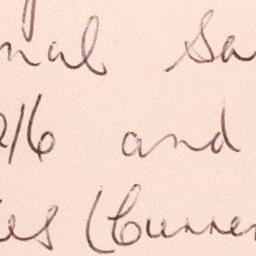 nal Sa
216 and
es (Curren